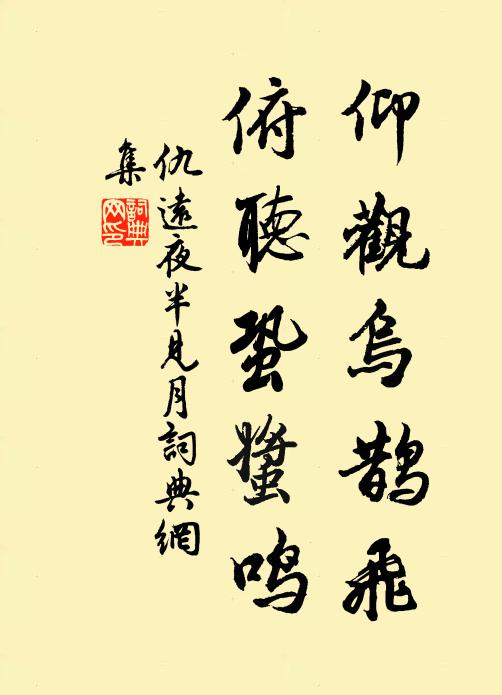 仰觀烏鵲飛
俯聽蛩螿鳴
仇遠夜半見月詞典網
集
詞典
网印